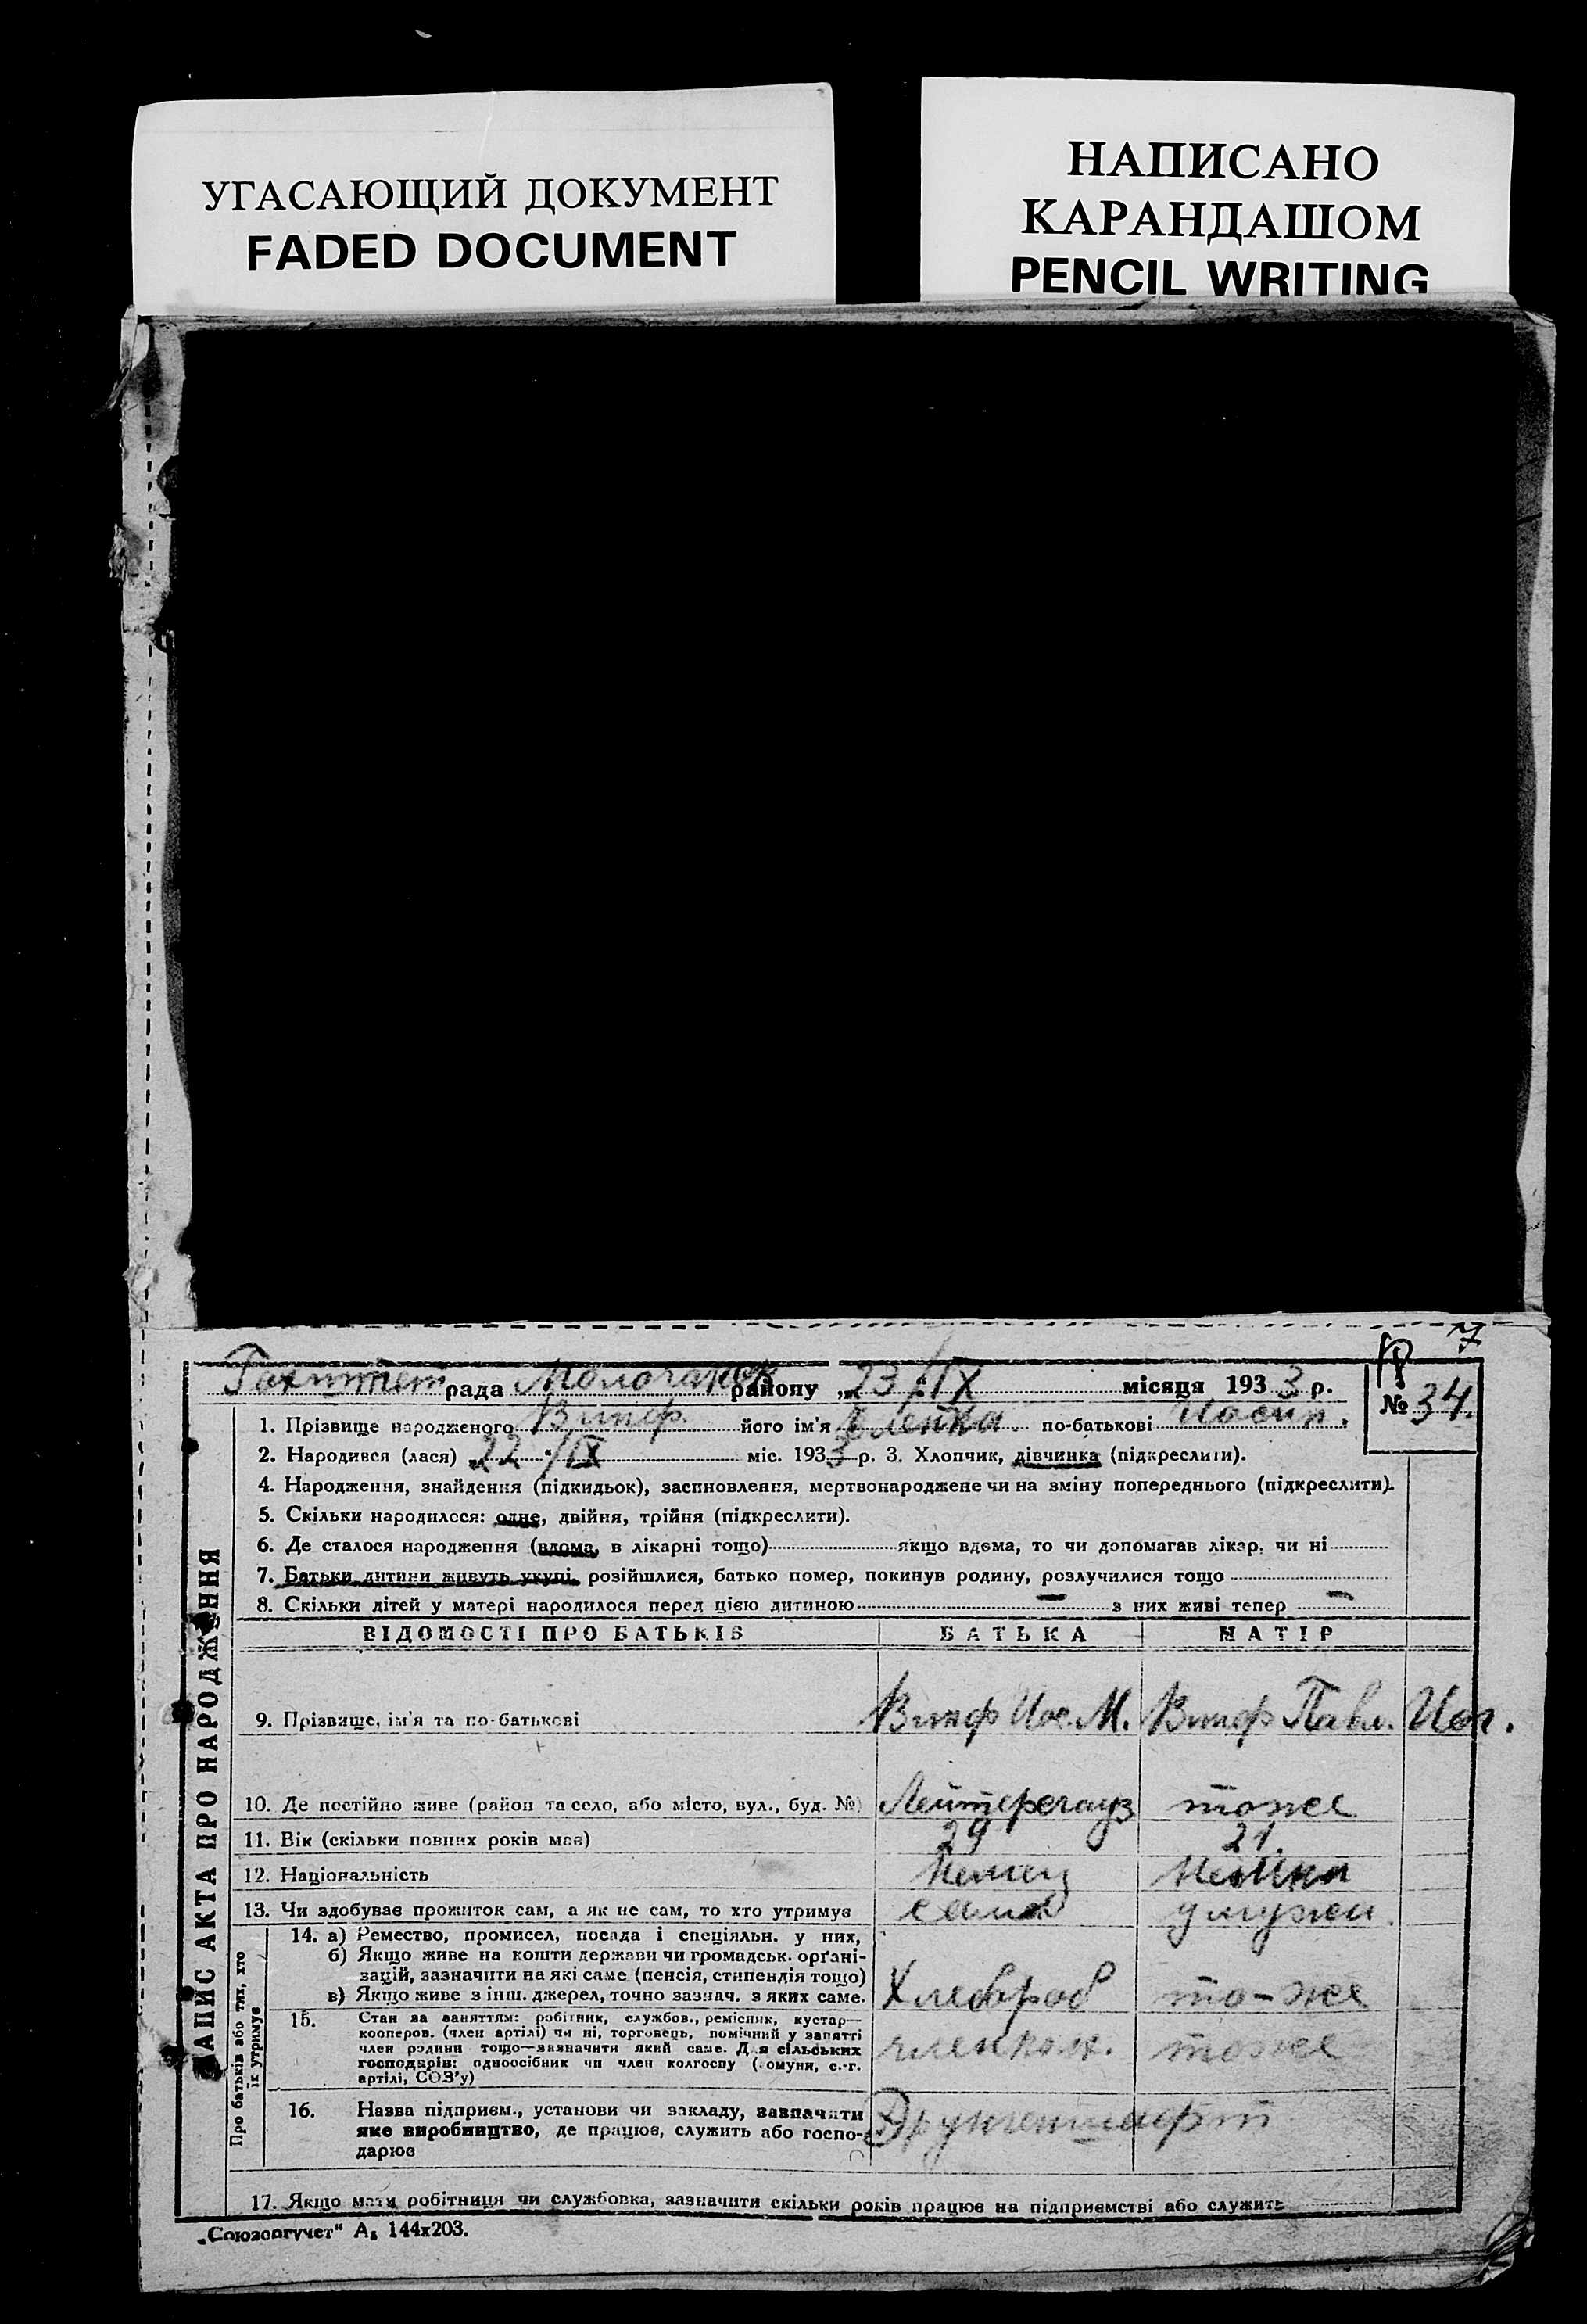 УГАСАЮЩИЙ ДОКУМЕНТ
FADED DOCUMENT
НАПИСАНО
КАРАНДАШОМ
PENCIL WRITING
7
рада Молочанск району „23/IX місяця 1933 р.
№ 34.
1. Прізвище народженого його ім'я Єленка по-батькові Иосип.
2. Народився (лася) „22"/IX міс. 1933 р. 3. Хлопчик, дівчинка (підкреслити).
4. Народження, знайдення (підкидьок), засиновлення, мертвонароджене чи на зміну попереднього (підкреслити).
5. Скільки народилося: одне, двійня, трійня (підкреслити).
6. Де сталося народження (вдома, в лікарні тощо) якщо вдома, то чи допомагав лікар. чи ні
7. Батьки дитини живуть укупі, розійшлися, батько помер, покинув родину, розлучилися тощо
8. Скільки дітей у матері народилося перед цією дитиною — з них живі тепер —
ЗАПИС АКТА ПРО НАРОДЖЕННЯ
ВІДОМОСТІ ПРО БАТЬКІВ БАТЬКА МАТІР
9. Прізвище, ім'я та по-батькові Иос. М. Павл.
10. Де постійно живе (район та село, або місто, вул., буд. №) тоже
11. Вік (скільки повних років має) 29 21.
12. Національність Немец Немка
13. Чи здобуває прожиток сам, а як не сам, то хто утримує сам у мужа
Про батьків або тих, хто
їх утримує
14. а) Ремество, промисел, посада і спеціяльн. у них,
б) Якщо живе на кошти держави чи громадськ. орґані-
зацій, зазначити на які саме (пенсія, стипендія тощо)
в) Якщо живе з інш. джерел, точно зазнач. з яких саме. Хлебороб то-же
15. Стан за заняттям: робітник, службов., ремісник, кустар—
кооперов. (член артілі) чи ні, торговець, помічний у занятті
член родини тощо—зазначити який саме. Для сільських
господарів: одноосібник чи член колгоспу (комуни, с.-г.
артілі, СОЗ'у) член кол. тоже
16. Назва підприєм., установи чи закладу, зазначити
яке виробництво, де працює, служить або госпо-
дарює
17. Якщо мати робітниця чи службовка, зазначити скільки років працює на підприємстві або служить
„Союзоргучет" А₅ 144х203.